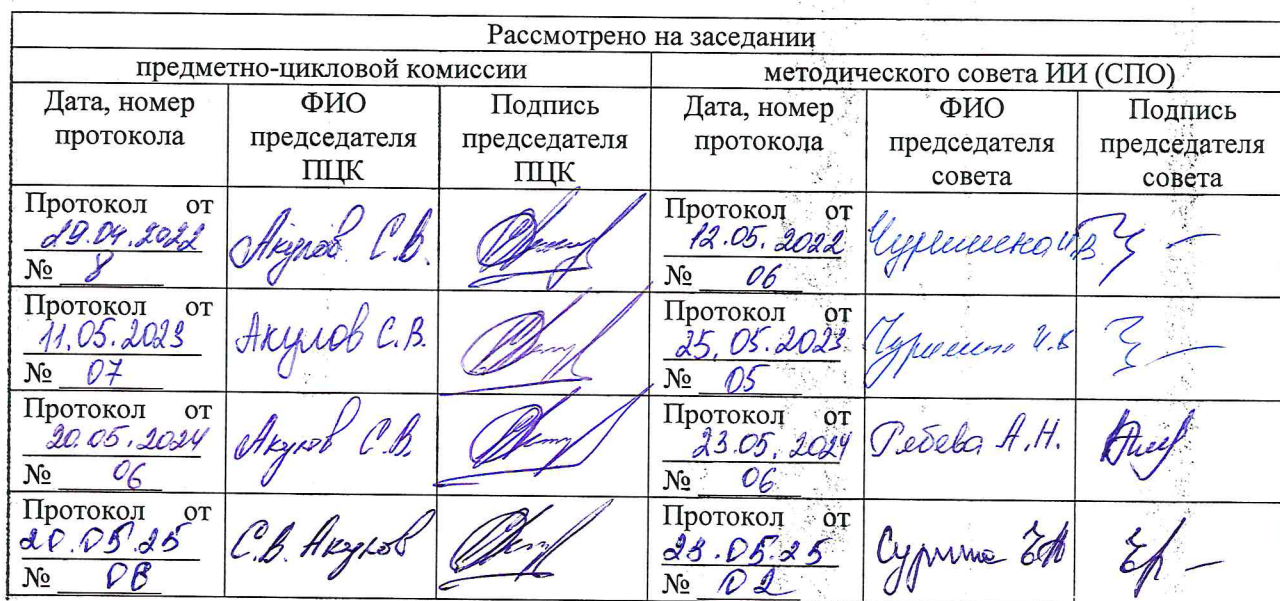 Рассмотрено на заседании
предметно-цикловой комиссии методического совета ИИ (СПО)
Дата, номер протокола ФИО председателя ПЦК Подпись председателя ПЦК Дата, номер протокола ФИО председателя совета Подпись председателя совета
Протокол от
29.04.2022
№ 8
Акулов С.В.
Протокол от
12.05.2022
№ 06
Протокол от
11.05.2023
№ 07
Акулов С.В.
Протокол от
25.05.2023
№ 05
Протокол от
20.05.2024
№ 06
Акулов С.В.
Протокол от
23.05.2024
№ 06
Рябева А.Н.
Протокол от
20.05.25
№ 08
С.В. Акулов
Протокол от
23.05.25
№ 02